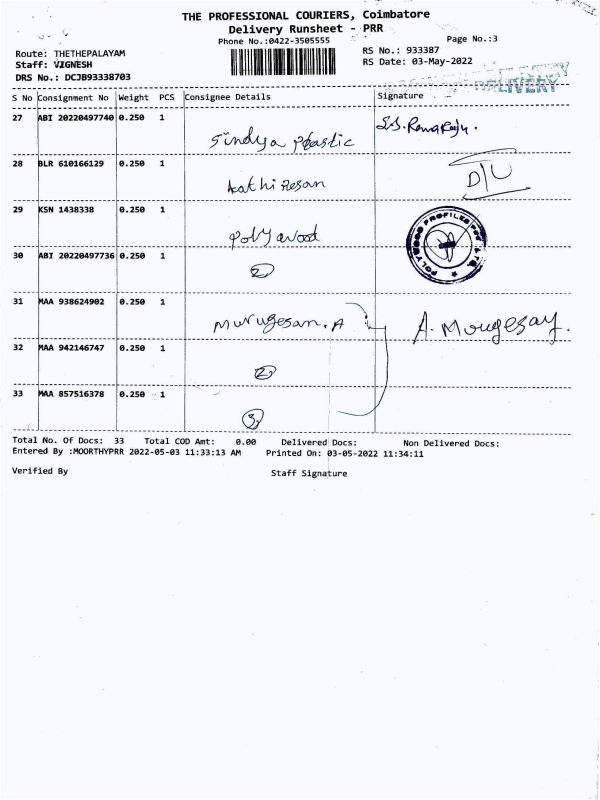 THE PROFESSIONAL COURIERS, Coimbatore
Delivery Runsheet - PRR
Phone No.:0422-3505555
Page No.:3
Route: THETHEPALAYAM
RS No.: 933387
Staff: VIGNESH
RS Date: 03-May-2022
DRS No.: DCJB93338703
DELIVERY
S No Consignment No Weight PCS Consignee Details Signature
27 ABI 20220497740 0.250 1 Sindya plastic S.S. Ramaraju.
28 BLR 610166129 0.250 1 Kathiresan D/C
29 KSN 1438338 0.250 1 Polywood
POLYWOOD PROFILES PVT LTD.
30 ABI 20220497736 0.250 1 2
31 MAA 938624902 0.250 1 Murugesan.A A. Mougesay.
32 MAA 942146747 0.250 1 2
33 MAA 857516378 0.250 1 3
Total No. Of Docs: 33 Total COD Amt: 0.00 Delivered Docs: Non Delivered Docs:
Entered By :MOORTHYPRR 2022-05-03 11:33:13 AM Printed On: 03-05-2022 11:34:11
Verified By Staff Signature